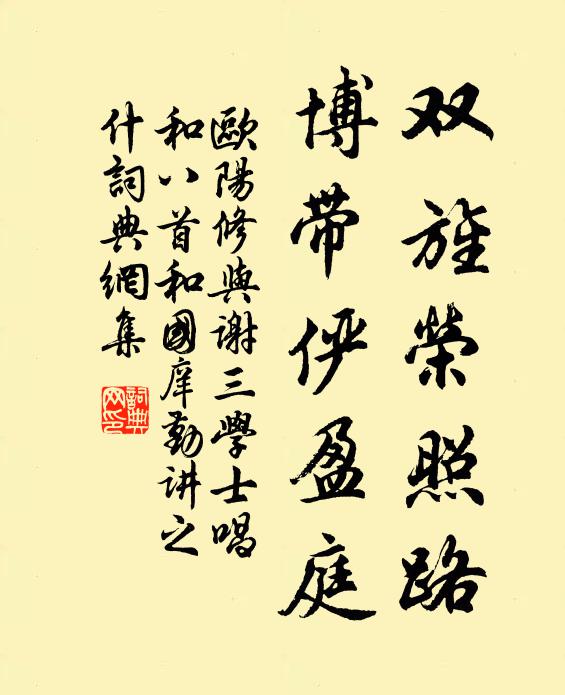 双旌榮照路
博帶俨盈庭
歐陽修與謝三學士唱
和八首和國庠勸讲之
什詞典網集
詞典
网印